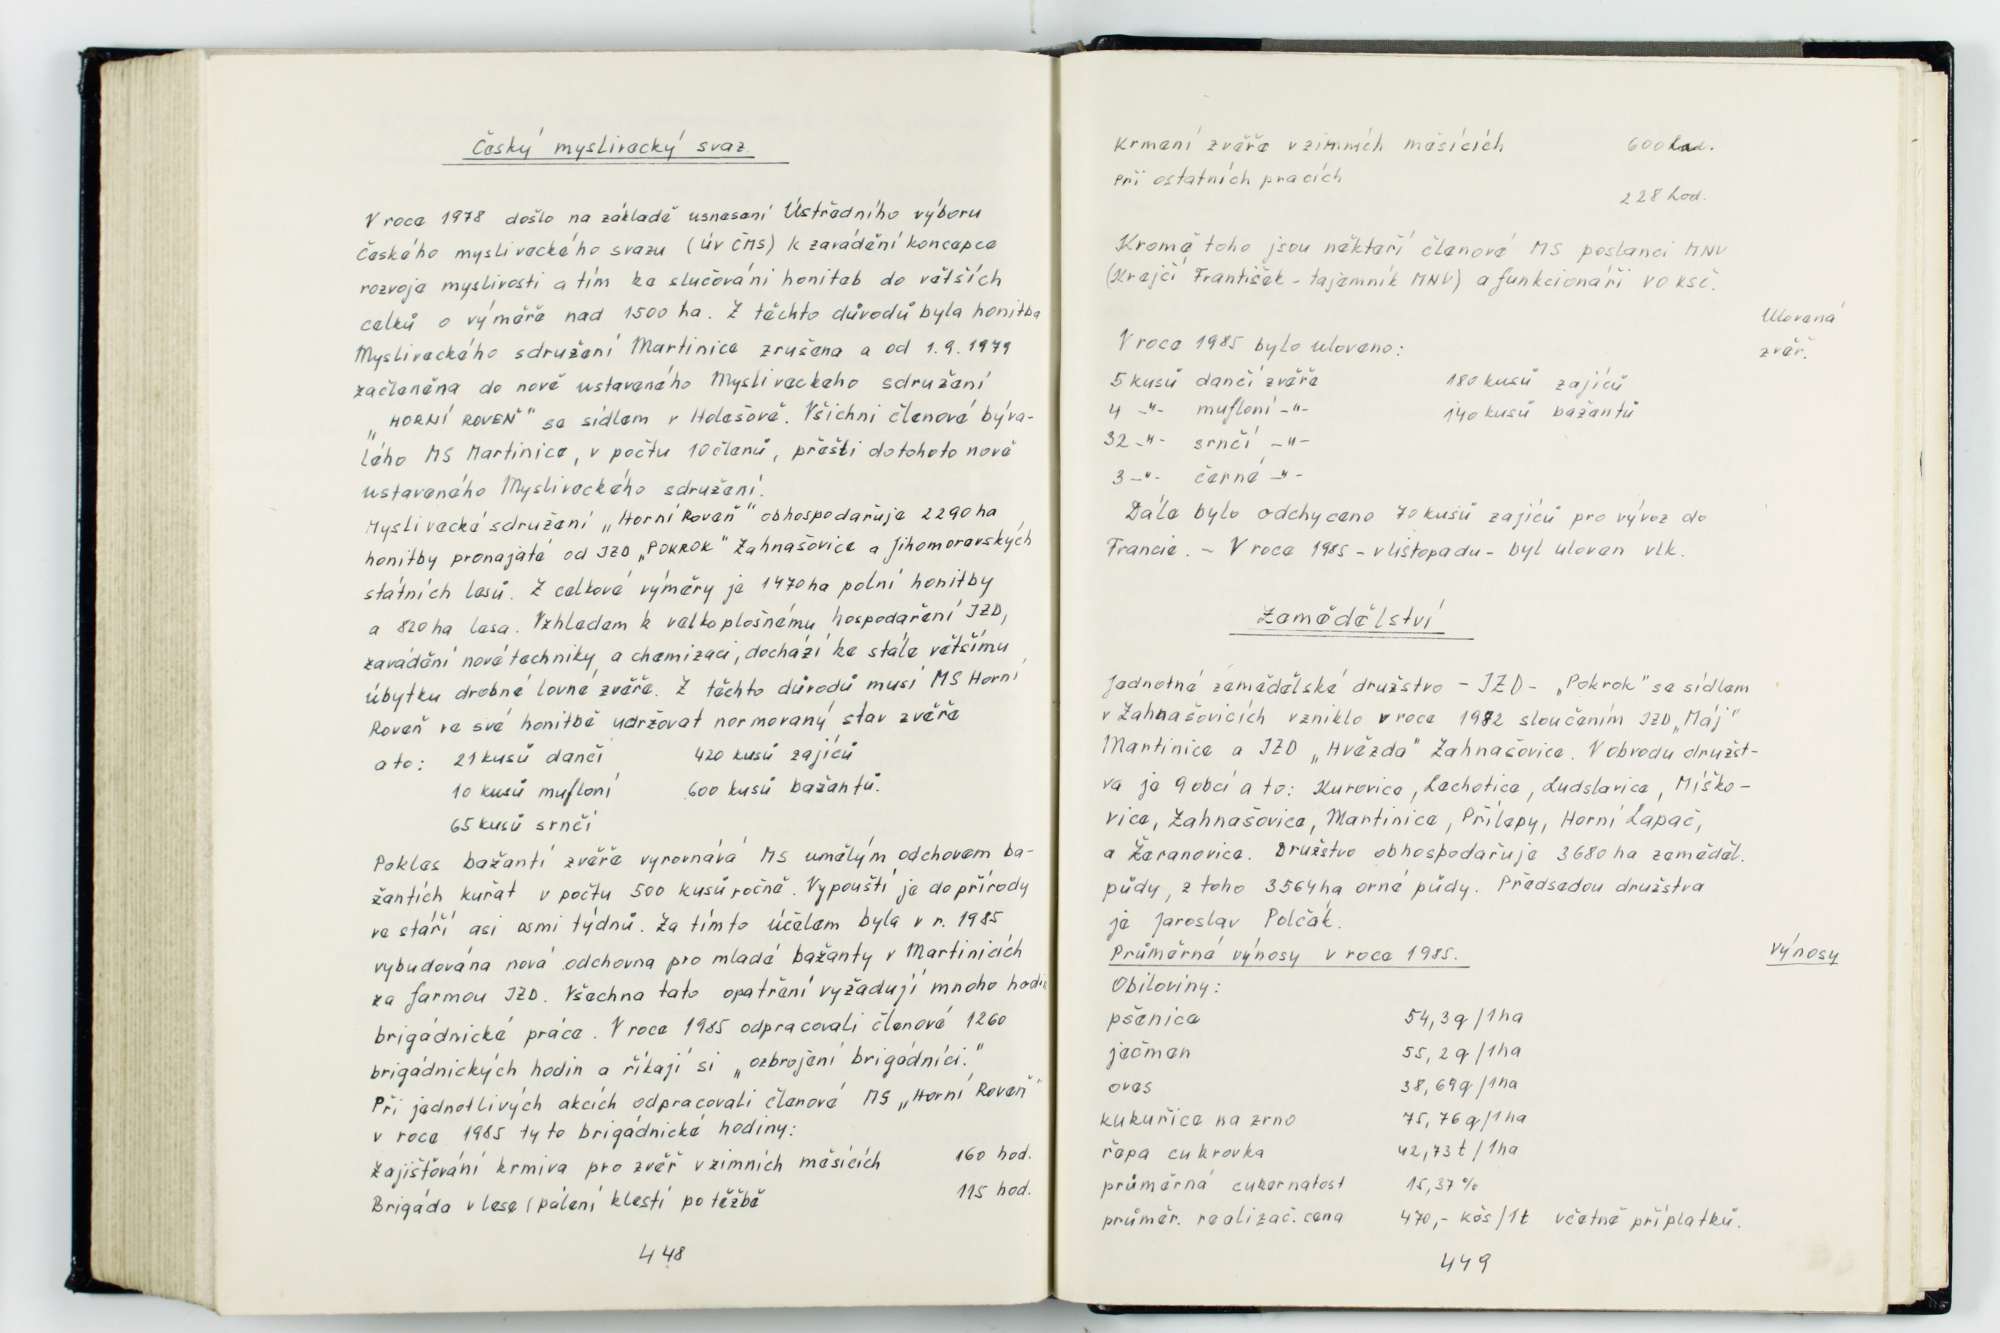 Český myslivecký svaz
V roce 1978 došlo na základě usnesení Ústředního výboru
Českého mysliveckého svazu (ÚV ČMS) k zavádění koncepce
rozvoje myslivosti a tím ke slučování honiteb do větších
celků o výměře nad 1500 ha. Z těchto důvodů byla honitba
Mysliveckého sdružení Martinice zrušena a od 1.9.1979
začleněna do nově ustaveného Mysliveckého sdružení
„HORNÍ ROVEŇ" se sídlem v Holešově. Všichni členové býva-
lého MS Martinice, v počtu 10 členů, přešli do tohoto nově
ustaveného Mysliveckého sdružení.
Myslivecké sdružení „Horní Roveň" obhospodařuje 2290 ha
honitby pronajaté od JZD „POKROK" Žahnašovice a Jihomoravských
státních lesů. Z celkové výměry je 1470 ha polní honitby
a 820 ha lesa. Vzhledem k velkoplošnému hospodaření JZD,
zavádění nové techniky a chemizaci, dochází ke stále většímu
úbytku drobné lovné zvěře. Z těchto důvodů musí MS Horní
Roveň ve své honitbě udržovat normovaný stav zvěře
a to: 21 kusů dančí 420 kusů zajíců
10 kusů mufloní 600 kusů bažantů.
65 kusů srnčí
Pokles bažantí zvěře vyrovnává MS umělým odchovem ba-
žantích kuřat v počtu 500 kusů ročně. Vypouští je do přírody
ve stáří asi osmi týdnů. Za tímto účelem byla v r. 1985
vybudována nová odchovna pro mladé bažanty v Martinicích
za farmou JZD. Všechna tato opatření vyžadují mnoho hodin
brigádnické práce. V roce 1985 odpracovali členové 1260
brigádnických hodin a říkají si „ozbrojení brigádníci."
Při jednotlivých akcích odpracovali členové MS „Horní Roveň"
v roce 1985 tyto brigádnické hodiny:
Zajišťování krmiva pro zvěř v zimních měsících 160 hod.
Brigáda v lese (pálení klestí po těžbě 115 hod.
448
Krmení zvěře v zimních měsících 600 hod.
Při ostatních pracích
228 hod.
Kromě toho jsou někteří členové MS poslanci MNV
(Krejčí František - tajemník MNV) a funkcionáři VO KSČ.
Ulovená
zvěř.
V roce 1985 bylo uloveno:
5 kusů dančí zvěře 180 kusů zajíců
4 -"- mufloní -"- 140 kusů bažantů
32 -"- srnčí -"-
3 -"- černé -"-
Dále bylo odchyceno 70 kusů zajíců pro vývoz do
Francie. - V roce 1985 - v listopadu - byl uloven vlk.
Zemědělství
Jednotné zemědělské družstvo - JZD - „Pokrok" se sídlem
v Žahnašovicích vzniklo v roce 1982 sloučením JZD „Máj"
Martinice a JZD „Hvězda" Žahnašovice. V obvodu družst-
va je 9 obcí a to: Kurovice, Lechotice, Ludslavice, Míško-
vice, Žahnašovice, Martinice, Přílepy, Horní Lapač,
a Žeranovice. Družstvo obhospodařuje 3680 ha zeměděl.
půdy, z toho 3564 ha orné půdy. Předsedou družstva
je Jaroslav Polčák.
Průměrné výnosy v roce 1985. Výnosy
Obiloviny:
pšenice 54,3 q/1ha
ječmen 55,2 q/1ha
oves 38,69 q/1ha
kukuřice na zrno 75,76 q/1ha
řepa cukrovka 42,73 t/1ha
průměrná cukernatost 15,37 %
průměr. realizač. cena 470,- Kčs/1t včetně příplatků.
449